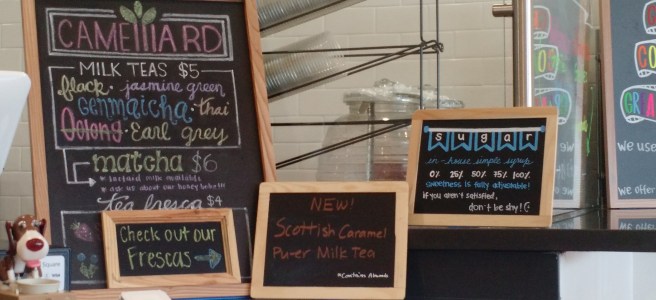 CAMELLIARD
MILK TEAS $5
black · jasmine green
Genmaicha · thai
Oolong · Earl grey
matcha $6
* ask us about our honey boba!!!
tea fresca $4
Check out our
Frescas
NEW!
Scottish Caramel
Pu-er Milk Tea
*Contains Almonds
sugar
in-house simple syrup
0% 25% 50% 75% 100%
sweetness is fully adjustable!
if you aren't satisfied,
don't be shy! (:
We use
We offer
Square